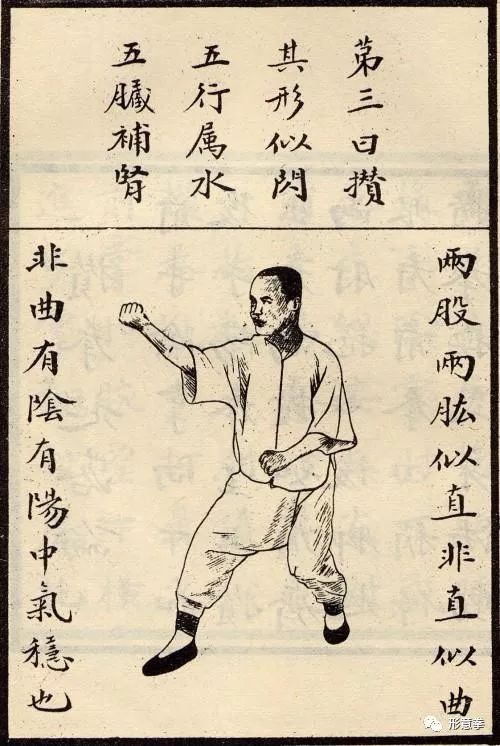 第三曰攅
其形似閃
五行属水
五臓補腎
兩股兩肱似直非直似曲
非曲有陰有陽中氣穩也
形意拳